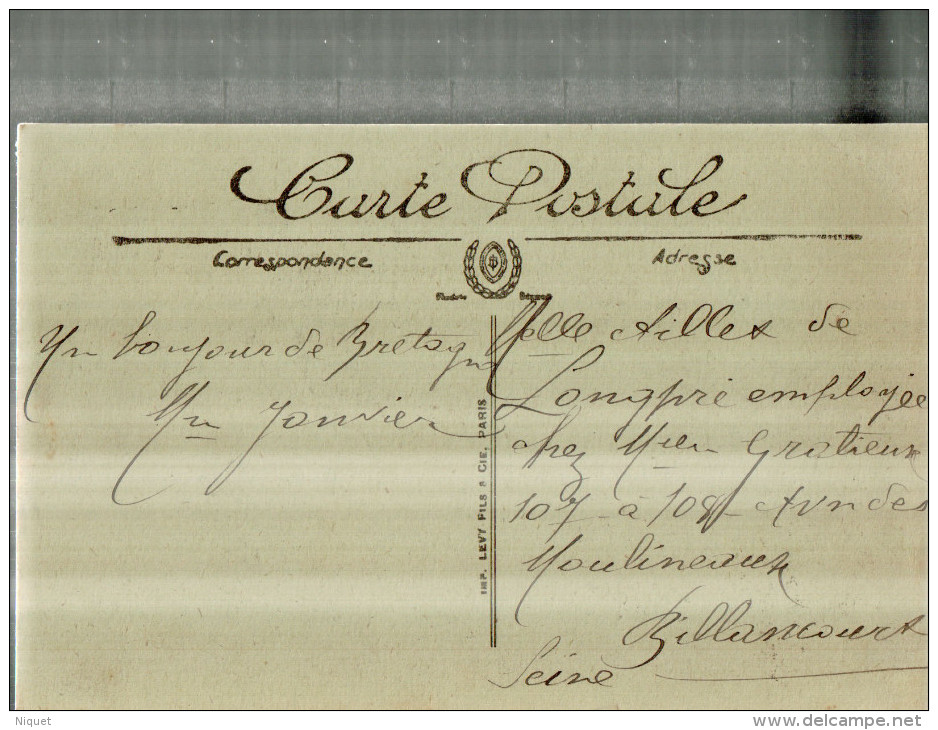 Carte Postale
Correspondance
Adresse
Un bonjour de Bretagne
Janvier
IMP. LEVY FILS & CIE. PARIS
Melle Ailles de
Longpré employée
chez Gratieux
107 à 108 Avn des
Moulineaux
Billancourt
Seine
Niquet
www.delcampe.net